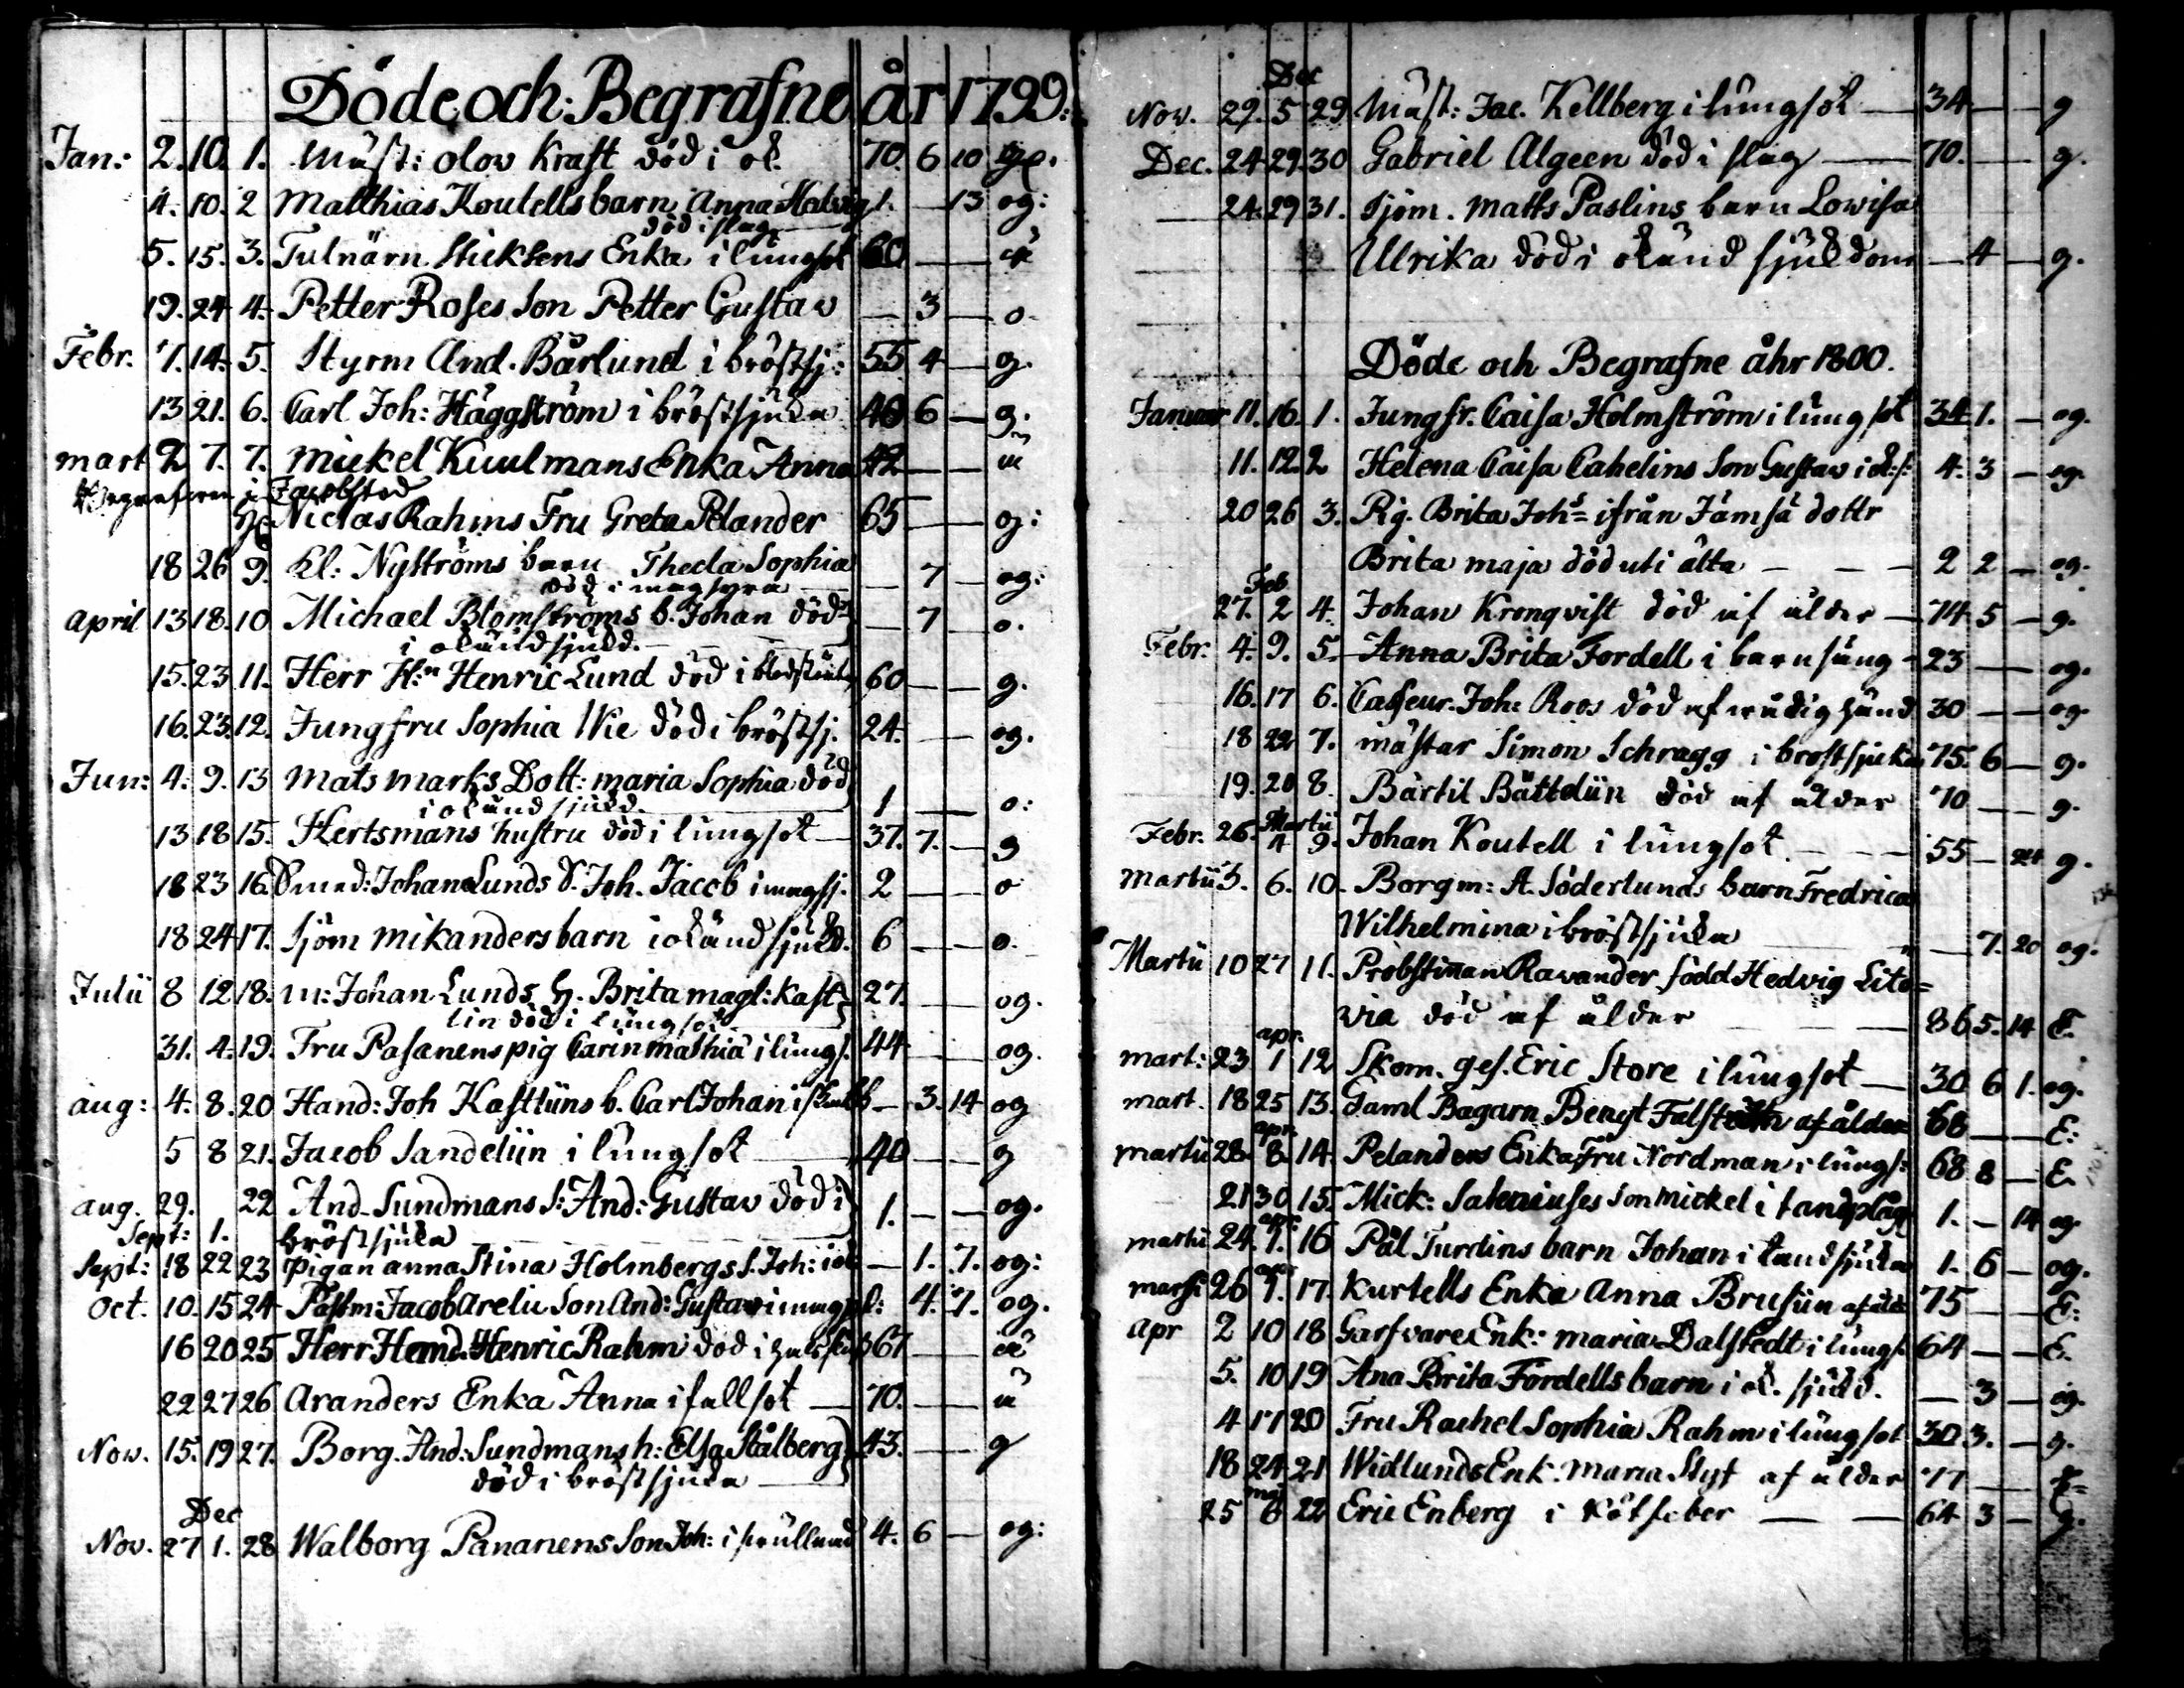 Döde och: Begrafne år 1799:
Jan: 2. 10. 1. Mäst: olov Kraft död i ok. 70. 6 10
4. 10. 2 Matthias Koutells barn Anna Hedvig 1. — 13 og:
död i slag
5. 15. 3. Tulnärn Enka i lungsot 60 — —
19. 24 4. Petter Roses Son Petter Gustav — 3 — o.
Febr. 7. 14. 5. Styrm And. Bärlund i bröstsj: 55 4 — g.
13 21. 6. Carl Joh: Häggström i bröstsjuka 40 6 — g.
mart 2 7. 7. Mickel Kuulmans Enka Anna 42 — —
Begrafven i Jacobstad
Niclas Rahms Fru Greta Pelander 65 — — og:
18 26 9. Kl: Nyströms barn Theda Sophia — 7 — og:
död i magsyra
april 13 18. 10 Michael Blomströms b. Johan död — 7 — o.
i okändsjukd.
15. 23 11. Herr H:n Henric Lund död i 60 — — g.
16. 23. 12. Jungfru Sophia Wie död i bröstsj. 24. — — og.
Jun: 4. 9. 13 Mats Marks Dott: Maria Sophia död
i okändsjukd. 1 — — o:
13 18 15. Hertsmans hustru död i lungsot 37. 7. — g
18 23 16. Smed: Johan Lunds S. Joh. Jacob i magsj. 2 — — o
18 24 17. Sjöm Mikanders barn i okändsjukd. 6 — — o.
Julii 8 12 18. m: Johan Lunds H. Brita magl: Kast- 27. — — og.
lin död i lungsot
31. 4. 19. Fru Pasanens pig Carin Mathia i lungs. 44 — — og.
aug: 4. 8. 20 Hand: Joh Kastliins b. Carl Johan i — 3. 14 og
5 8 21. Jacob Sandeliin i lungsot 40 — — g
aug. 29. 22 And. Sundmans S: And: Gustav död i 1. — — og.
Sept: 1. bröstsjuka
Sept: 18 22 23 Pigan Anna Stina Holmbergs S. Joh: i ok — 1. 7. og:
Oct. 10. 15 24 Pastm: Jacob Areliu Son And: Gustav 4. 7. og.
16 20 25 Herr Hand. Henric Rahm död i 67 — —
22 27 26 Aranders Enka Anna i fallsot — 70. — —
Nov. 15. 19 27. Borg. And: Sundmans h: Elsa Stålberg 43. — — g
död i bröstsjuka
Dec
Nov. 27 1. 28 Walborg Pananens Son Joh: i 4. 6 — og:
Dec
Nov. 29. 5 29 Mäst: Jac. Kellberg i lungsot — 34 — — g
Dec. 24 29 30 Gabriel Algeen död i slag — 70. — — g.
— 24. 29 31. Sjöm. Matts Paslins barn Lowisa
Ullrika död i okänd sjukdom — 4 — g.
Döde och Begrafne åhr 1800.
Januar 11. 16. 1. Jungfr. Caisa Holmström i lungsot 34 1. — og.
11. 12. 2 Helena Caisa Cahelins Son Gustav i ok: s: 4. 3 — og.
20 26 3. Pig. Brita Joh:s ifrån Jämsä dottr
Brita Maja död uti ålta — — — 2 2 — og.
Feb
27. 2 4. Johan Kronqvist död af ålder — 74 5 — g.
Febr: 4. 9. 5. Anna Brita Fordell i barnsäng — 23 — — og.
16. 17 6. Casseur. Joh: Roos död af 30 — — og.
18 22 7. Mästar Simon Schragg i bröstsjuka 75. 6 — g.
19. 20 8. Bärtil Bättdiin död af ålder 70 — — g.
Martii
Febr. 26. 4 9. Johan Koutell i lungsot. — — 55 — 24 g.
Martii 3. 6. 10. Borgm: A. Söderlunds barn Fredrica
Wilhelmina i bröstsjuka — 7. 20 og.
Martii 10 27 11. Probstinnan Ravander född Hedvig Lito=
via död af ålder — — 86 5. 14 E.
apr.
mart: 23 1 12 Skom. ges. Eric Store i lungsot — 30 6 1. og.
mart. 18 25 13. Gaml Bagarn Bengt af ålder 68 — — E:
apr.
martii 28. 8. 14. Pelanders Enka Fru Nordman i lungs: 68 8 — E.
21 30 15. Mick: Saleniuses Son Mickel i tandplåg 1. — 14 og.
apr.
martii 24. 7. 16 Pål Turdins barn Johan i tandsjuka 1. 6 — og.
apr
martii 26 7. 17. Kurtells Enka Anna Brusiin af åld 75 — — E:
apr 2 10 18 Garfvare Enk: Maria Dalstedt i lungs. 64 — — E.
5. 10 19 Ana Brita Fordells barn i ok. sjukd. — 3 — og.
4 17 20 Fru Rachel Sophia Rahm i lungsot 30 3. — g.
18 24 21 Widlunds Enk. Maria Styf af ålder 77 — —
maj
25 6 22 Eric Enberg i Rötfeber — — 64 3 — g.